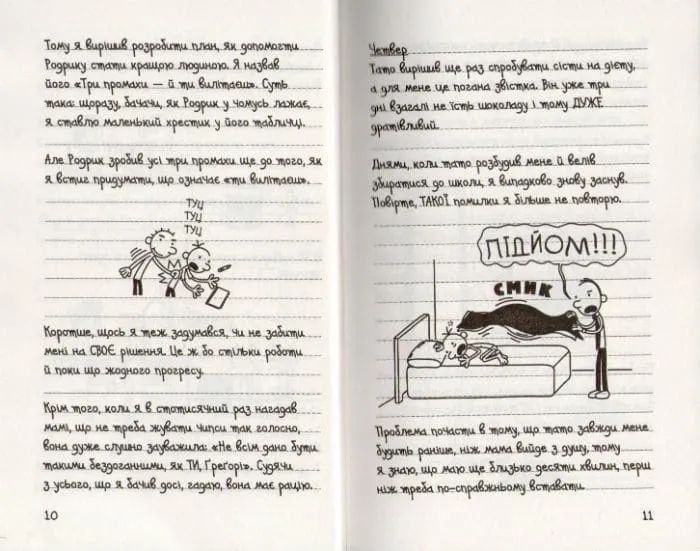 Тому я вирішив розробити план, як допомогти
Родрику стати кращою людиною. Я назвав
його «Три промахи — й ти вилітаєш». Суть
така: щоразу, бачачи, як Родрик у чомусь лажає,
я ставлю маленький хрестик у його табличці.
Але Родрик зробив усі три промахи ще до того, як
я встиг придумати, що означає «ти вилітаєш».
ТУЦ
ТУЦ
ТУЦ
Коротше, щось я теж задумався, чи не забити
мені на СВОЄ рішення. Це ж бо стільки роботи
й поки що жодного прогресу.
Крім того, коли я в стотисячний раз нагадав
мамі, що не треба жувати чипси так голосно,
вона дуже слушно зауважила: «Не всім дано бути
такими бездоганними, як ТИ, Ґреґорі». Судячи
з усього, що я бачив досі, гадаю, вона має рацію.
10
Четвер
Тато вирішив ще раз спробувати сісти на дієту,
а для мене це погана звістка. Він уже три
дні взагалі не їсть шоколаду і тому ДУЖЕ
дратівливий.
Днями, коли тато розбудив мене й велів
збиратися до школи, я випадково знову заснув.
Повірте, ТАКОЇ помилки я більше не повторю.
ПІДЙОМ!!!
СМИК
Проблема почасти в тому, що тато завжди мене
будить раніше, ніж мама вийде з душу, тому
я знаю, що маю ще близько десяти хвилин, перш
ніж треба по-справжньому вставати.
11